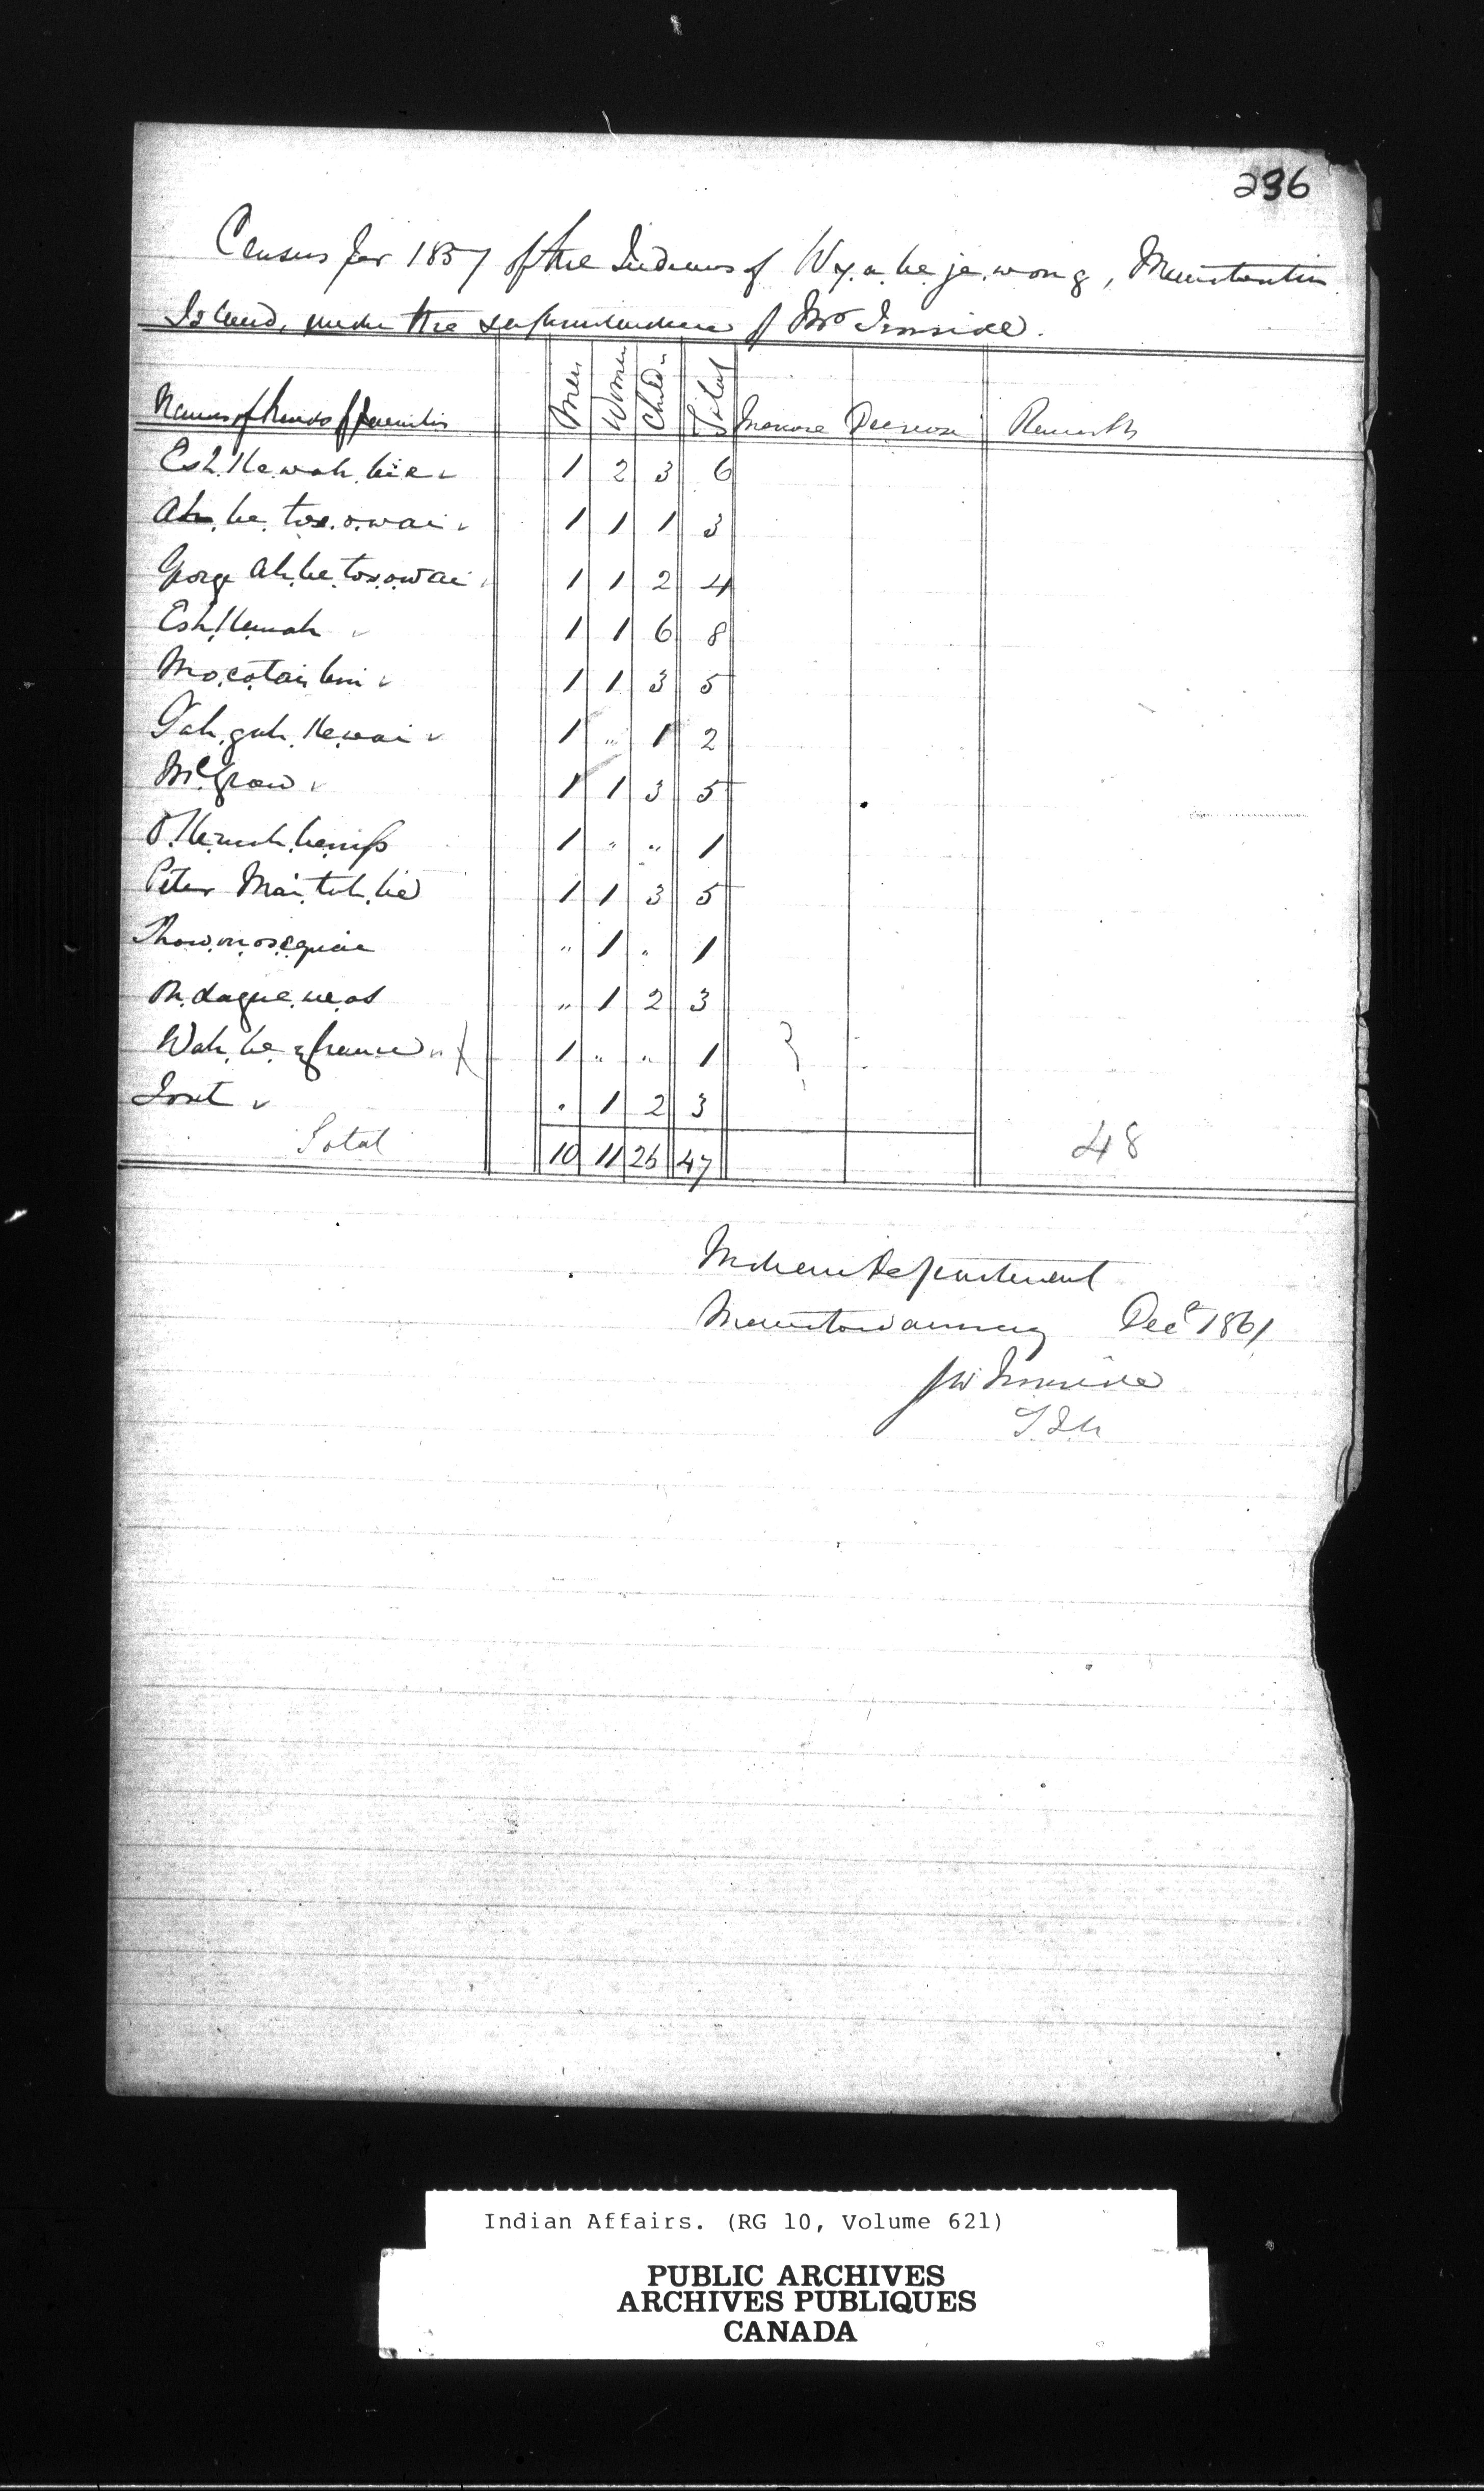 236
Census for 1857 of the Indians of Wy.a.be.je.wong, Manitoulin
Island, under the superintendence of Mr Ironside.
Names of heads of families Men Women Childn Total Increase Decrease Remarks
Esh.ke.wah.bie 1 2 3 6
Ah.be.tos.o.wai 1 1 1 3
George Ah.be.tos.o.wai 1 1 2 4
Esh.ke.mah 1 1 6 8
Mo.co.tai.bini 1 1 3 5
Tah.guh.ke.wai 1 " 1 2
McGraw 1 1 3 5
1 " " 1
Peter Mai.tuh.bie 1 1 3 5
" 1 " 1
" 1 2 3
Wah.be 1 " " 1
" 1 2 3
Total 10 11 26 47 48
Indian Department
Manitowaning Decr 1861
Ironside
Indian Affairs. (RG 10, Volume 621)
PUBLIC ARCHIVES
ARCHIVES PUBLIQUES
CANADA